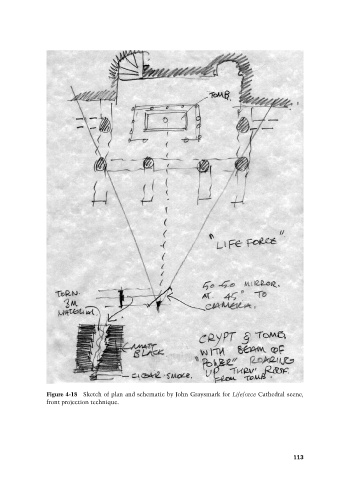 TOMB.
"LIFE FORCE"
50-50 MIRROR.
AT 45° TO
CAMERA.
TORN
3M
MATERIAL
MATT
BLACK
CLEAR SMOKE.
CRYPT & TOMB,
WITH BEAM OF
"POWER" ROARING
UP THRU' ROOF.
FROM TOMB.
Figure 4-18 Sketch of plan and schematic by John Graysmark for Lifeforce Cathedral scene,
front projection technique.
113